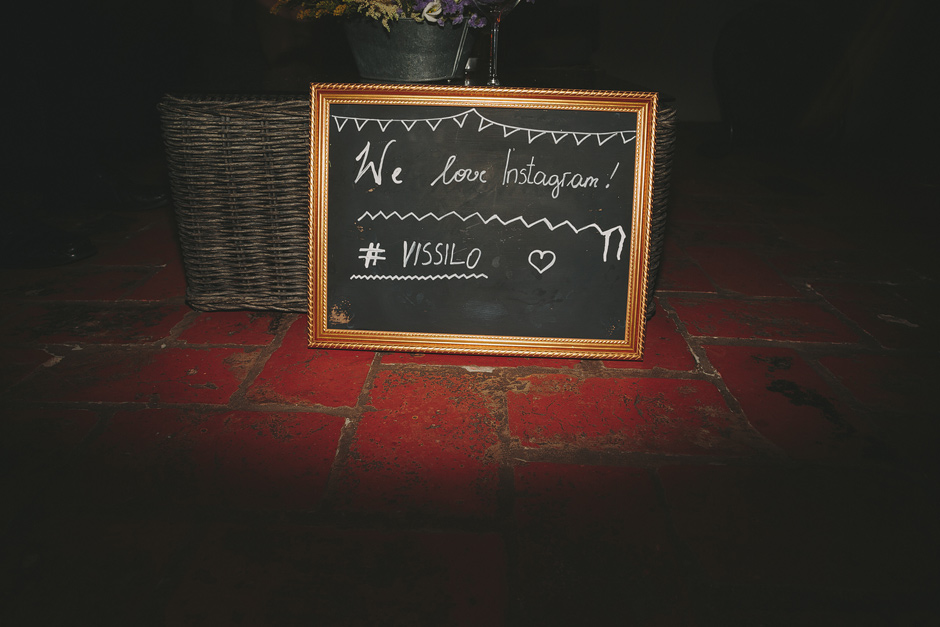 We love Instagram!
# VISSILO